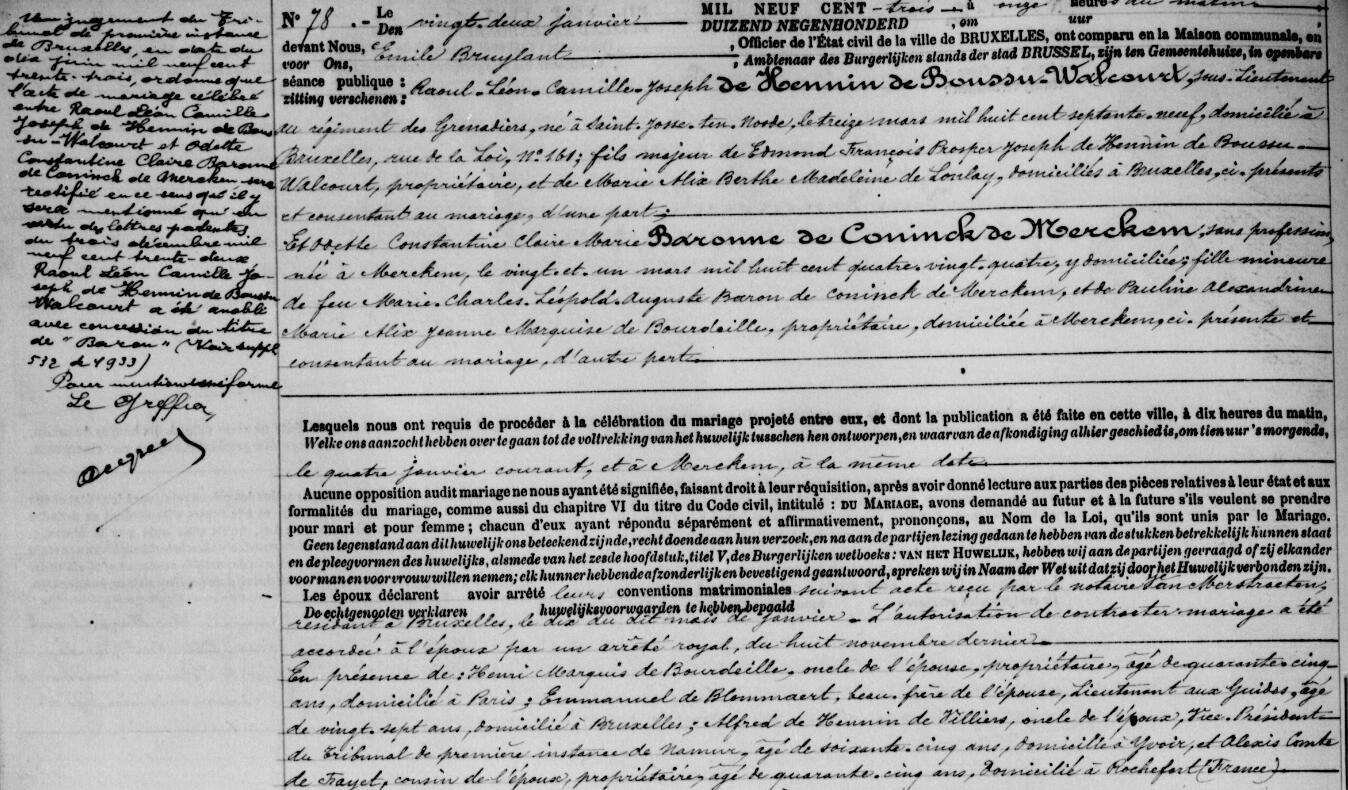 Un jugement du Tri-
bunal de première instance
de Bruxelles, en date du
dix juin mil neuf cent
trente-trois, ordonne que
l'acte de mariage célébré
entre Raoul Léon Camille
Joseph de Hennin de Bous-
su-Walcourt et Odette
Constantine Claire Baronne
de Coninck de Mercken sera
rectifié en ce sens qu'il y
sera mentionné qu'en
vertu des lettres patentes
du trois décembre mil
neuf cent trente-deux
Raoul Léon Camille Jo-
seph de Hennin de Boussu
Walcourt a été anobli
avec concession du titre
de "Baron" (Voir suppl
532 de 1933)
Pour mention conforme
Le Greffier
N° 78 .- Le vingt-deux janvier MIL NEUF CENT trois à onze heures du matin
Den DUIZEND NEGENHONDERD om uur
devant Nous, Emile Bruylant, Officier de l'État civil de la ville de BRUXELLES, ont comparu en la Maison communale, en
voor Ons, , Ambtenaar des Burgerlijken stands der stad BRUSSEL, zijn ten Gemeentehuize, in openbare
séance publique : Raoul-Léon-Camille-Joseph de Hennin de Boussu-Walcourt, sous-Lieutenant
zitting verschenen :
au régiment des Grenadiers, né à Saint-Josse-ten-Noode, le treize mars mil huit cent septante-neuf, domicilié à
Bruxelles, rue de la Loi, N° 161; fils majeur de Edmond François Prosper Joseph de Hennin de Boussu-
Walcourt, propriétaire, et de Marie Alix Berthe Madeleine de Loulay, domiciliés à Bruxelles, ci-présents
et consentant au mariage, d'une part;
Et Odette Constantine Claire Marie Baronne de Coninck de Merckem, sans profession,
née à Merckem, le vingt-et-un mars mil huit cent quatre-vingt-quatre, y domiciliée; fille mineure
de feu Marie-Charles-Léopold-Auguste Baron de Coninck de Merckem, et de Pauline Alexandrine
Marie Alix Jeanne Marquise de Bourdeille, propriétaire, domiciliée à Merckem, ci-présente et
consentant au mariage, d'autre part.
Lesquels nous ont requis de procéder à la célébration du mariage projeté entre eux, et dont la publication a été faite en cette ville, à dix heures du matin,
Welke ons aanzocht hebben over te gaan tot de voltrekking van het huwelijk tusschen hen ontworpen, en waarvan de afkondiging alhier geschied is, om tien uur 's morgends,
le quatre janvier courant, et à Merckem, à la même date
Aucune opposition audit mariage ne nous ayant été signifiée, faisant droit à leur réquisition, après avoir donné lecture aux parties des pièces relatives à leur état et aux
formalités du mariage, comme aussi du chapitre VI du titre du Code civil, intitulé : DU MARIAGE, avons demandé au futur et à la future s'ils veulent se prendre
pour mari et pour femme ; chacun d'eux ayant répondu séparément et affirmativement, prononçons, au Nom de la Loi, qu'ils sont unis par le Mariage.
Geen tegenstand aan dit huwelijk ons beteekend zijnde, recht doende aan hun verzoek, en na aan de partijen lezing gedaan te hebben van de stukken betrekkelijk hunnen staat
en de pleegvormen des huwelijks, alsmede van het zesde hoofdstuk, titel V, des Burgerlijken wetboeks : VAN HET HUWELIJK, hebben wij aan de partijen gevraagd of zij elkander
voor man en voor vrouw willen nemen; elk hunner hebbende afzonderlijk en bevestigend geantwoord, spreken wij in Naam der Wet uit dat zij door het Huwelijk verbonden zijn.
Les époux déclarent avoir arrêté leurs conventions matrimoniales suivant acte reçu par le notaire Van Merstraeten,
De echtgenooten verklaren huwelijksvoorwaarden te hebben bepaald
résidant à Bruxelles, le dix du dit mois de janvier. L'autorisation de contracter mariage a été
accordée à l'époux par un arrêté royal, du huit novembre dernier
En présence de: Henri Marquis de Bourdeille, oncle de l'épouse, propriétaire, âgé de quarante-cinq
ans, domicilié à Paris; Emmanuel de Blommaert, beau-frère de l'épouse, Lieutenant aux Guides, âgé
de vingt-sept ans, domicilié à Bruxelles; Alfred de Hennin de Villiers, oncle de l'époux, Vice-Président
du Tribunal de première instance de Namur, âgé de soixante-cinq ans, domicilié à Yvoir, et Alexis Comte
de Frayet, cousin de l'époux, propriétaire, âgé de quarante-cinq ans, domicilié à Rochefort (France)